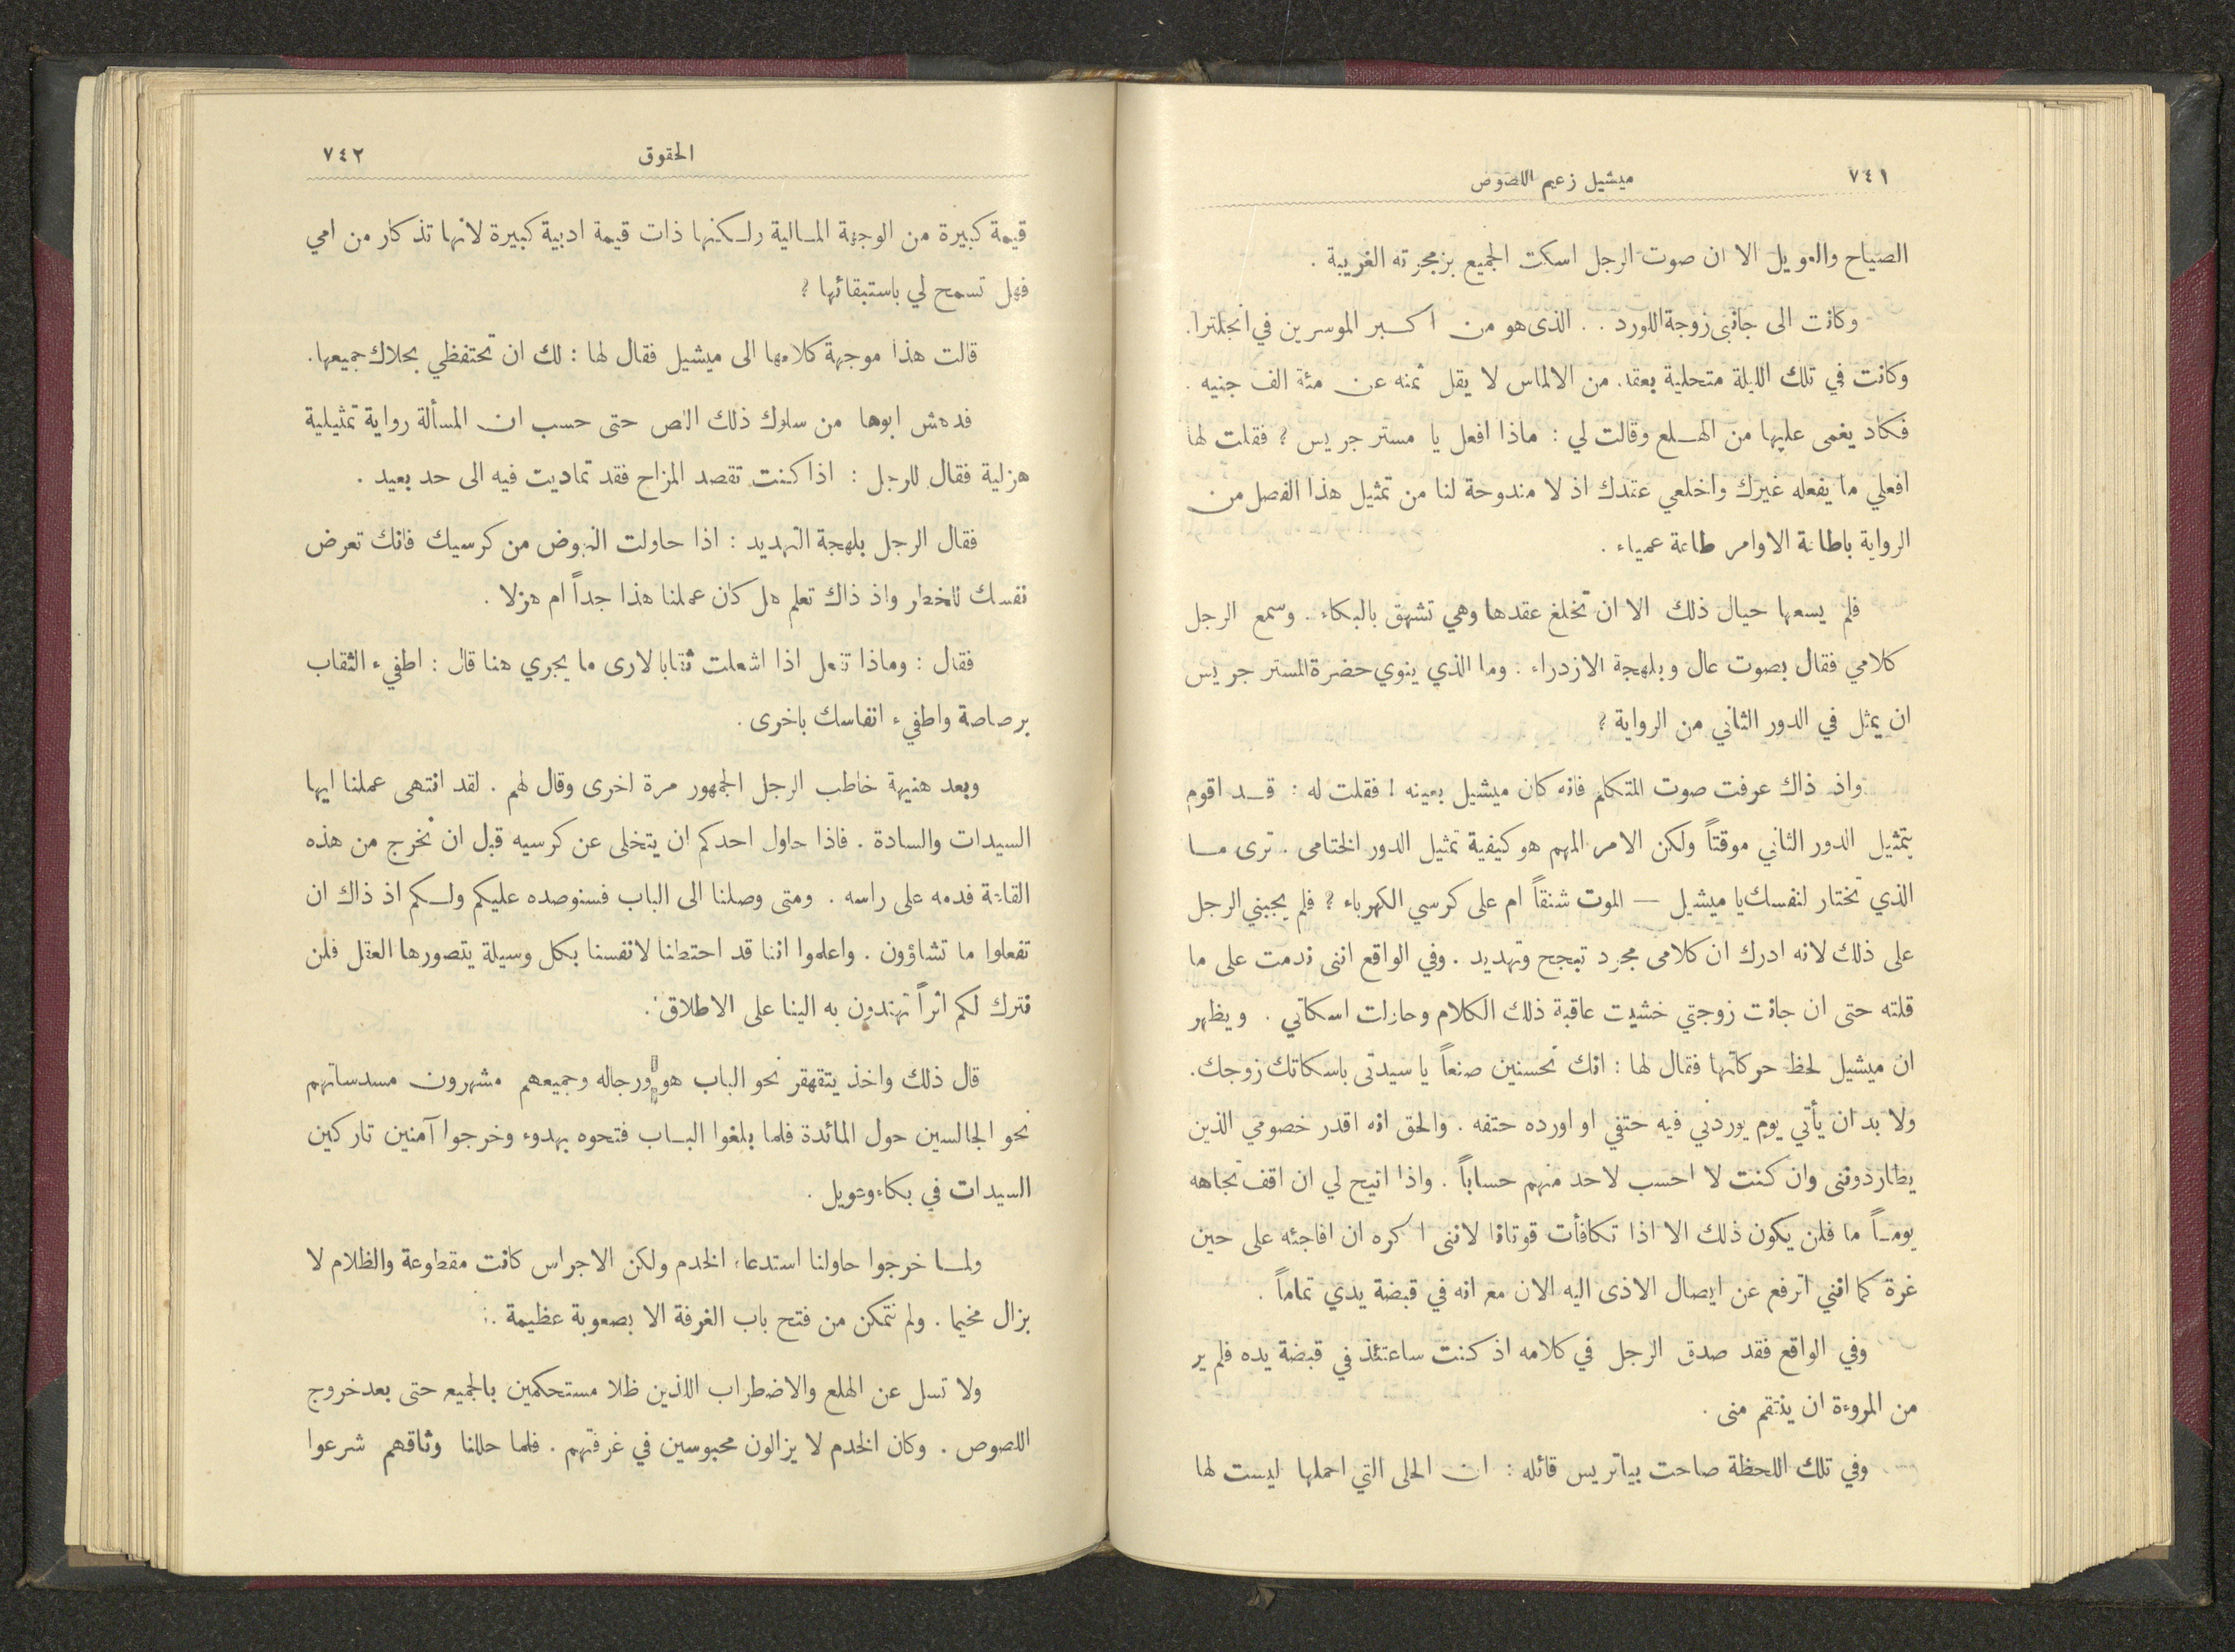 ٧٤١
ميشيل زعيم اللصوص
الصياح والعويل الا ان صوت الرجل اسكت الجميع بزمجرته الغريبة .
وكانت الى جانبى زوجة اللورد . . الذى هو من اكبر الموسرين في انجلترا.
وكانت في تلك الليلة متحلية بعقد من الالماس لا يقل ثمنه عن مئة الف جنيه .
فكاد يغمى عليها من الهلع وقالت لي : ماذا افعل يا مستر جريس ؟ فقلت لها
افعلي ما يفعله غيرك واخلعي عقدك اذ لا مندوحة لنا من تمثيل هذا الفصل من
الرواية باطاعة الاوامر طاعة عمياء .
فلم يسعها حيال ذلك الا ان تخلغ عقدها وهي تشهق بالبكاء . وسمع الرجل
كلامي فقال بصوت عال وبلهجة الازدراء : وما الذي ينوي حضرة المستر جريس
ان يمثل في الدور الثاني من الرواية ؟
واذ ذاك عرفت صوت المتكلم فانه كان ميشيل بعينه ! فقلت له : قد اقوم
بتمثيل الدور الثاني موقتاً ولكن الامر المهم هو كيفية تمثيل الدور الختامى . ترى ما
الذي تختار لنفسك يا ميشيل — الموت شنقاً ام على كرسي الكهرباء ؟ فلم يجبني الرجل
على ذلك لانه ادرك ان كلامى مجرد تبجح وتهديد . وفي الواقع اننى ندمت على ما
قلته حتى ان جانت زوجتي خشيت عاقبة ذلك الكلام وحاولت اسكاتي . ويظهر
ان ميشيل لحظ حركاتها فقال لها : انك تحسنين صنعاً يا سيدتى باسكاتك زوجك.
ولا بد ان يأتي يوم يوردني فيه حتفي او اورده حتفه . والحق انه اقدر خصومي الذين
يطاردوننى وان كنت لا احسب لاحد منهم حساباً . واذا اتيح لي ان اقف تجاهه
يوماً ما فلن يكون ذلك الا اذا تكافأت قوتانا لاننى اكره ان افاجئه على حين
غرة كما انني اترفع عن ايصال الاذى اليه الان مع انه في قبضة يدي تماماً .
وفي الواقع فقد صدق الرجل في كلامه اذ كنت ساعتئذ في قبضة يده فلم ير
من المروءة ان ينتقم منى .
وفي تلك اللحظة صاحت بياتريس قائله : ان الحلى التي احملها ليست لها
الحقوق
٧٤٢
قيمة كبيرة من الوجهة المالية ولكنها ذات قيمة ادبية كبيرة لانها تذكار من امي
فهل تسمح لي باستبقائها ؟
قالت هذا موجهة كلامها الى ميشيل فقال لها : لك ان تحتفظي بحلاك جميعها.
فدهش ابوها من سلوك ذلك اللص حتى حسب ان المسألة رواية تمثيلية
هزلية فقال للرجل : اذا كنت تقصد المزاح فقد تماديت فيه الى حد بعيد .
فقال الرجل بلهجة التهديد : اذا حاولت النهوض من كرسيك فانك تعرض
نفسك للخطر واذ ذاك تعلم هل كان عملنا هذا جداً ام هزلا .
فقال : وماذا تفعل اذا اشعلت ثقابا لارى ما يجري هنا قال : اطفيء الثقاب
برصاصة واطفيء انفاسك باخرى .
وبعد هنيهة خاطب الرجل الجمهور مرة اخرى وقال لهم . لقد انتهى عملنا ايها
السيدات والسادة . فاذا حاول احدكم ان يتخلى عن كرسيه قبل ان نخرج من هذه
القاعة فدمه على راسه . ومتى وصلنا الى الباب فسنوصده عليكم ولكم اذ ذاك ان
تفعلوا ما تشاؤون . واعلموا اننا قد احتطنا لانفسنا بكل وسيلة يتصورها العقل فلن
نترك لكم اثراً تهتدون به الينا على الاطلاق .
قال ذلك واخذ يتقهقر نحو الباب هو ورجاله وجميعهم مشهرون مسدساتهم
نحو الجالسين حول المائدة فلما بلغوا الباب فتحوه بهدوء وخرجوا آمنين تاركين
السيدات في بكاء وعويل .
ولما خرجوا حاولنا استدعاء الخدم ولكن الاجراس كانت مقطوعة والظلام لا
يزال مخيما . ولم نتمكن من فتح باب الغرفة الا بصعوبة عظيمة .
ولا تسل عن الهلع والاضطراب اللذين ظلا مستحكمين بالجميع حتى بعد خروج
اللصوص . وكان الخدم لا يزالون محبوسين في غرفتهم . فلما حللنا وثاقهم شرعوا